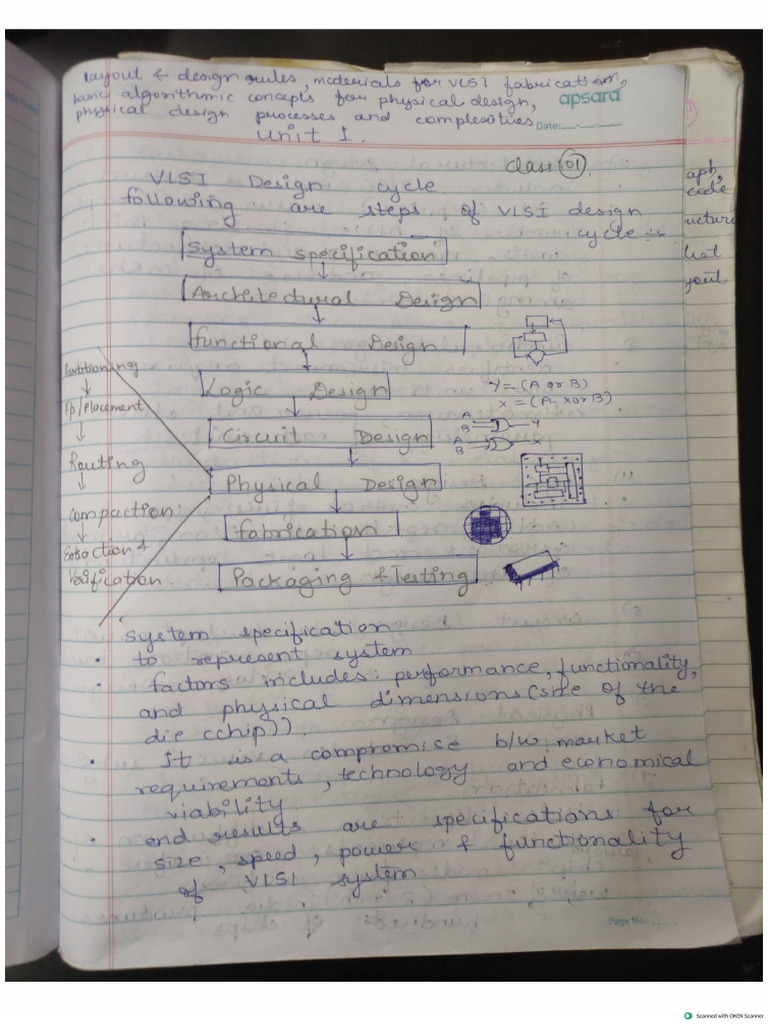 layout & design rules, materials for VLSI fabrication,
basic algorithmic concepts for physical design,
physical design processes and complexities
apsara
Date:
Unit 1.
Class 01.
VLSI Design cycle
following are steps of VLSI design
cycle :-
System specification
Architectural Design
functional Design
Logic Design
Y = (A or B)
X = (A xor B)
Circuit Design
A
B
Y
A
B
X
Physical Design
fabrication
Packaging & Testing
Partitioning
Fp/Placement
Routing
Compaction
Extraction &
Verification
System specification
• to represent system
• factors includes: performance, functionality,
and physical dimensions (size of the
die cchip)).
• It is a compromise b/w market
requirements, technology and economical
viability
• end results are specifications for
size, speed, power & functionality
of VLSI system
Page No.:
aph,
code
ucture
yout
Scanned with OKEN Scanner